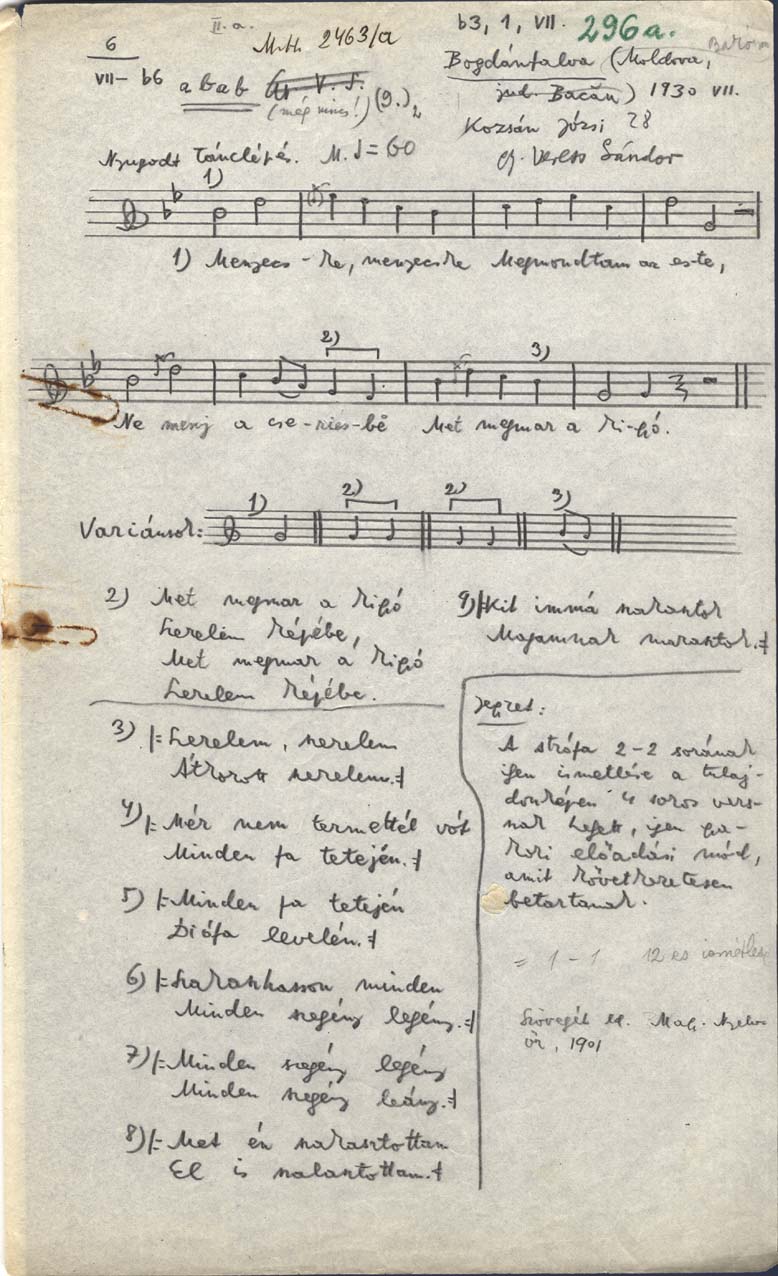 II. a.
6
VII– b6
M.H. 2463/a
b3, 1, VII. 296a.
a b a b
(még nincs!) (9.)2
Bogdánfalva (Moldova,
jud. Bacău) 1930 VII.
Kozsán Józsi 28
gy. Veress Sándor
Nyugodt tánclépés. M. ♩ = 60
1)
1) Menyecs - ke, menyecske Megmondtam az es-te,
2) 3)
Ne menj a cse-riés-bë Met megmar a Ki-gó.
Variánsok: 1) 2) 2) 3)
2) Met megmar a Kigó
Szerelem Kéjébe,
Met megmar a Kigó
Szerelem Kéjébe.
3) |:Szerelem, szerelem
Átkozott szerelem.:|
4) |:Mér nem termettél vót
Minden fa tetején.:|
5) |:Minden fa tetején
Diófa levelén.:|
6) |:Szakaszhasson minden
Minden szegény legény.:|
7) |:Minden szegény legény
Minden szegény leány.:|
8) |:Met én szakasztottam
El is szalasztottam.:|
9) |:Kit immá szakasztok
Magamnak marasztok.:|
Jegyzet:
A strófa 2–2 sorának
ilyen ismétlése a tulaj-
donképen 4 soros vers-
nak helyett, ilyen gya-
kori előadási mód,
amit következetesen
betartanak.
= 1 – 1 12 es ismétles
Szövegét ld. Mag. Nyelv
őr, 1901